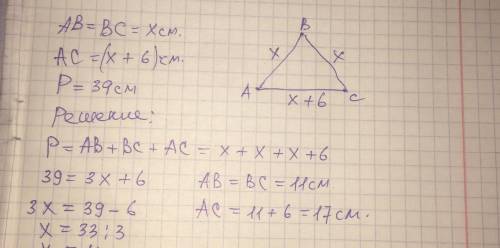 AB = BC = x см.
AC = (x + 6) см.
P = 39 см
Решение:
B
x
x
A
x + 6
C
P = AB + BC + AC = x + x + x + 6
39 = 3x + 6
AB = BC = 11 см
3x = 39 - 6
AC = 11 + 6 = 17 см.
x = 33 : 3